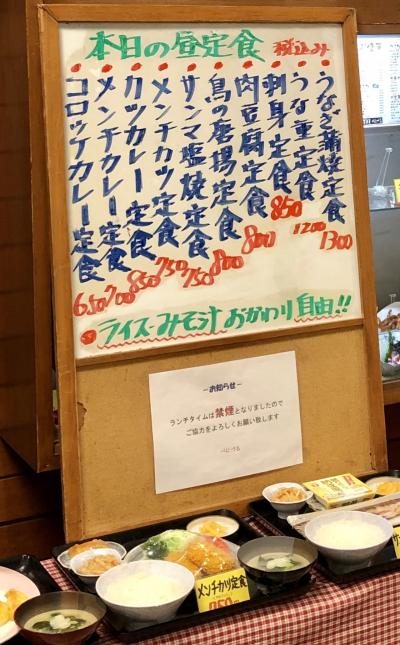 本日の昼定食 税込み
うなぎ蒲焼定食 1300
うな重定食 1200
刺身定食 850
肉豆腐定食 800
鳥の唐揚定食 800
サンマ塩焼定食 750
メンチカツ定食 750
カツカレー定食 850
メンチカレー定食 700
コロッケカレー定食 650
ライス・みそ汁 おかわり自由!!
―お知らせ―
ランチタイムは禁煙となりましたので
ご協力をよろしくお願い致します
メンチカツ定食